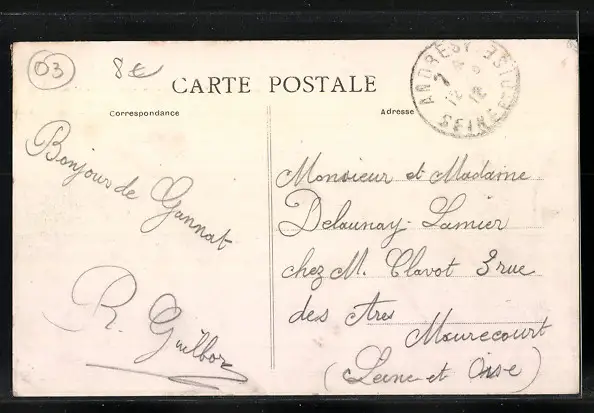 03
8€
CARTE POSTALE
Correspondance
Adresse
ANDRESY
SEINE-ET-OISE
Bonjour de Gannat
R. Guilbor
Monsieur et Madame
Delaunay-Lamier
chez M. Clavot 3 rue
des Ares
Maurecourt
(Seine et Oise)